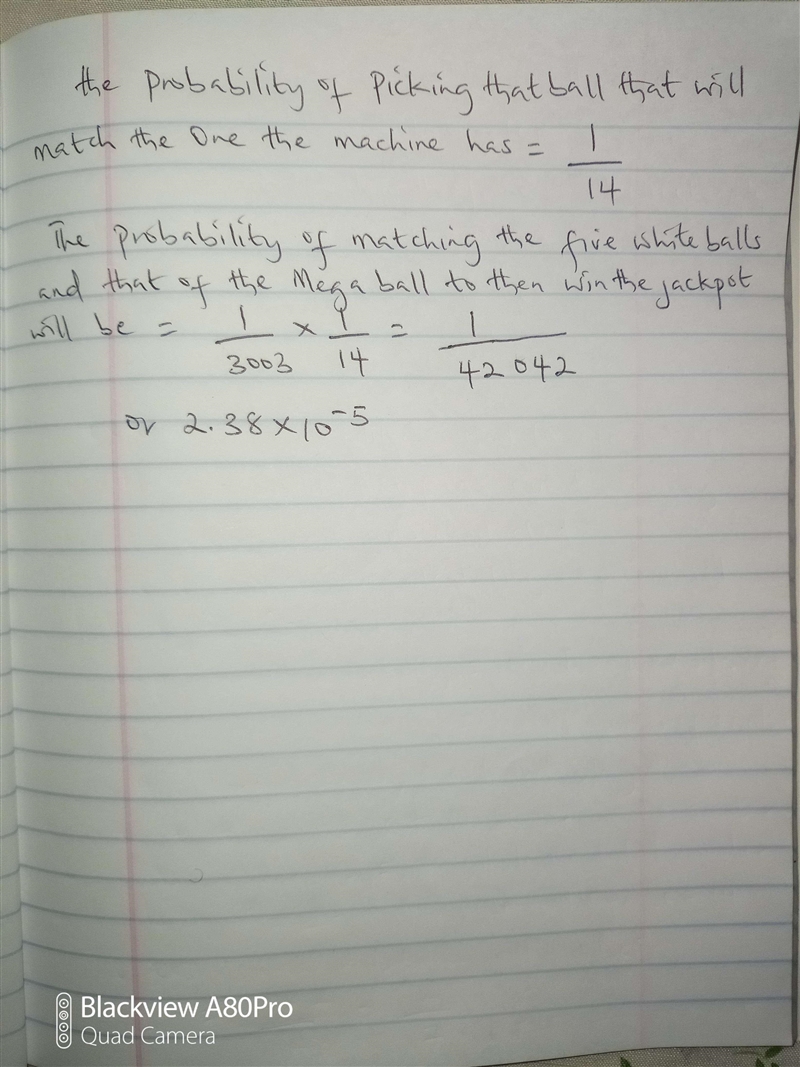 the probability of Picking that ball that will
match the One the machine has = 1/14
The probability of matching the five white balls
and that of the Mega ball to then win the jackpot
will be = 1/3003 × 1/14 = 1/42042
or 2.38 × 10⁻⁵
Blackview A80Pro
Quad Camera